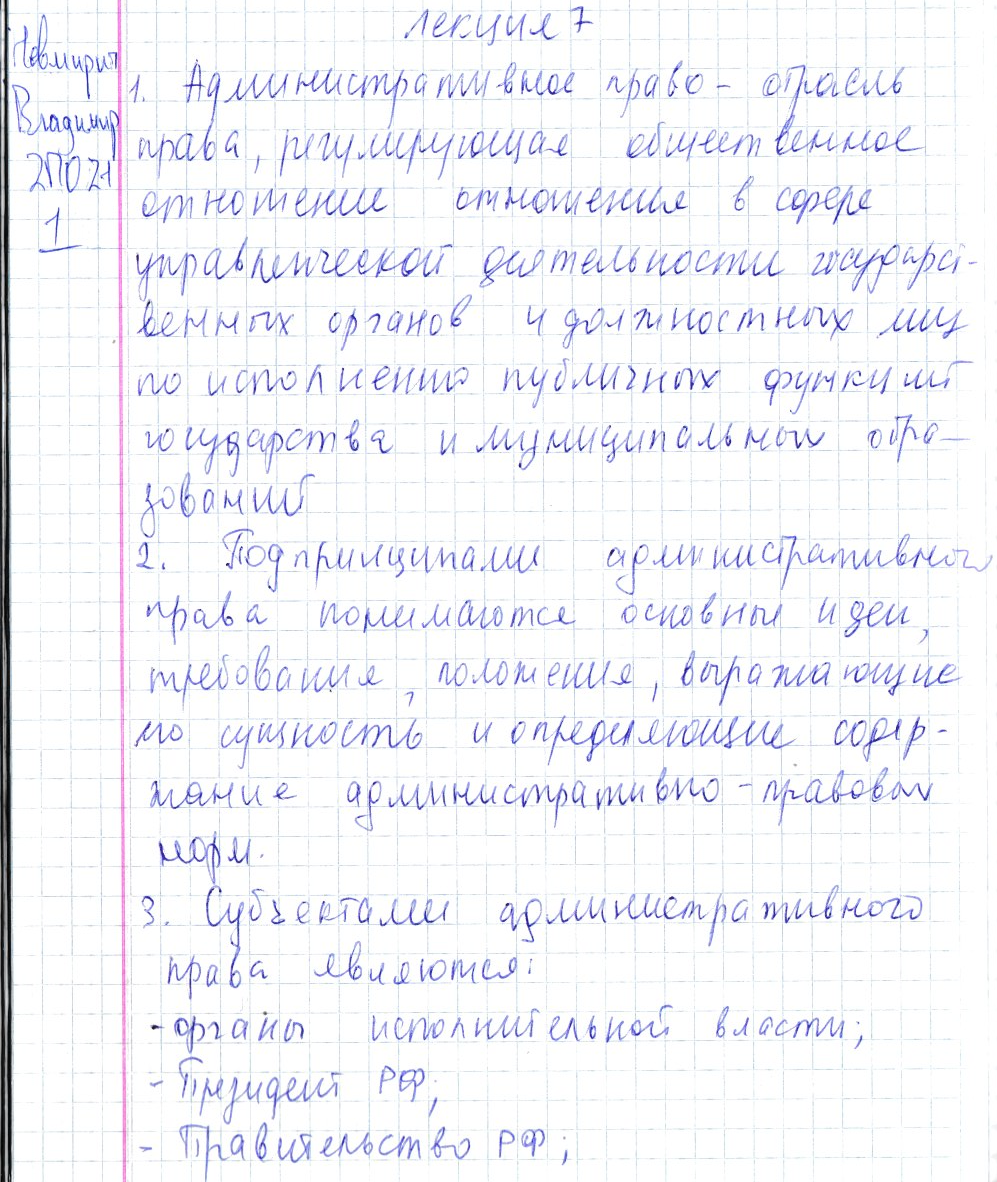 Лекция 7
Невмирит
Владимир
2ПО21
1
1. Административное право - отрасль
права, регулирующая общественное
отношение отношения в сфере
управленческой деятельности государст-
венных органов и должностных лиц
по исполнению публичных функций
государства и муниципальных обра-
зований
2. Под принципами административного
права понимаются основные идеи,
требования, положения, выражающие
его сущность и определяющие содер-
жание административно-правовых
норм.
3. Субъектами административного
права являются:
- органы исполнительной власти;
- Президент РФ;
- Правительство РФ;